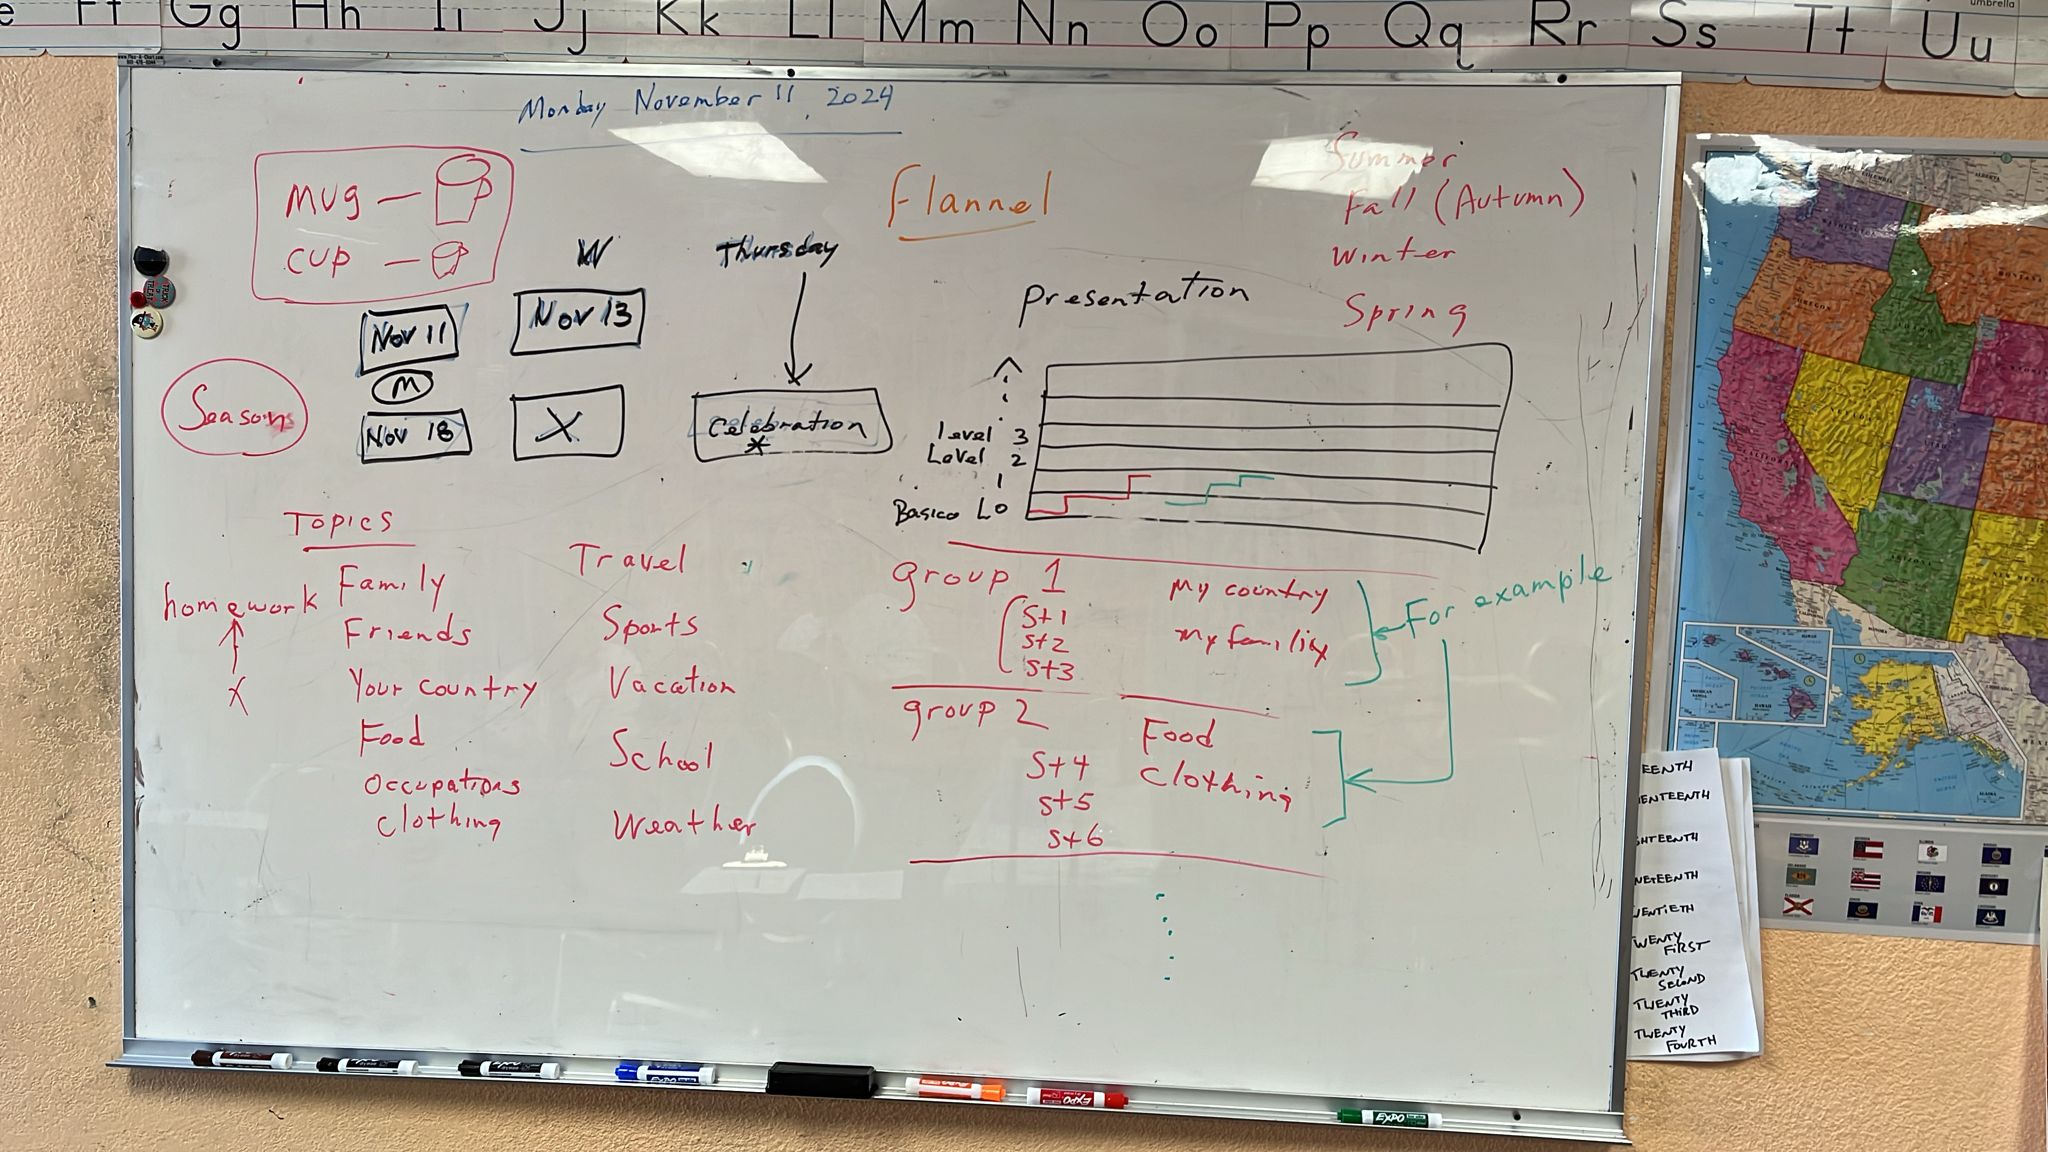 Ff Gg Hh Ii Jj Kk Ll Mm Nn Oo Pp Qq Rr Ss Tt Uu
umbrella
Monday November 11, 2024
MUG —
CUP —
Flannel
Summer
Fall (Autumn)
Winter
Spring
W
Thursday
Nov 11
Nov 13
M
Nov 18
X
Celebration
*
Seasons
Presentation
Level 3
Level 2
1
Basico L0
Topics
homework
X
Family
Friends
Your country
Food
Occupations
Clothing
Travel
Sports
Vacation
School
Weather
group 1
st1
st2
st3
My country
My family
For example
group 2
st4
st5
st6
Food
Clothing
EENTH
ENTEENTH
GHTEENTH
NETEENTH
WENTIETH
TWENTY FIRST
TWENTY SECOND
TWENTY THIRD
TWENTY FOURTH
WASHINGTON
OREGON
CALIFORNIA
NEVADA
IDAHO
UTAH
ARIZONA
MONTANA
NEW MEXICO
PACIFIC OCEAN
TRICK or TREAT
EXPO
EXPO
EXPO